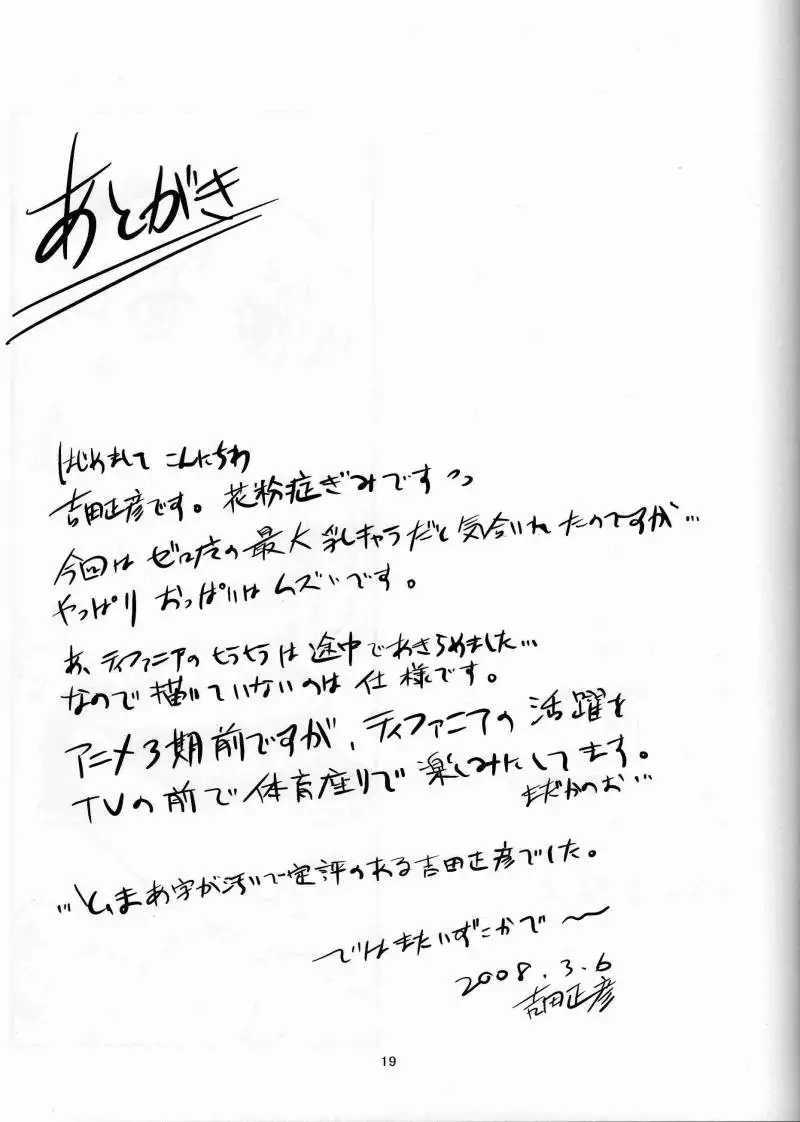 あとがき
はじめまして こんにちわ
吉田正彦です。花粉症ぎみですっっ
今回はゼロ の最大乳キャラだと気合いれたのですが…
やっぱり おっぱいはムズいです。
あ、ティファニアのヒラヒラは途中であきらめました…
なので描いていないのは仕様です。
アニメ3期前ですが、ティファニアの活躍を
TVの前で体育座りで楽しみにしてます。
まだかのお…
…と、まあ字が汚いで定評のある吉田正彦でした。
ではまたいずこかで〜
2008.3.6
吉田正彦
19